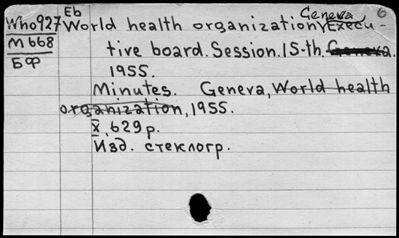 Geneva 6
Eb
Who927 World health organization, Execu-
M668 tive board. Session. 15-th. Geneva.
БФ 1955.
Minutes. Geneva, World health
organization, 1955.
X, 629 p.
Изд. стеклогр.